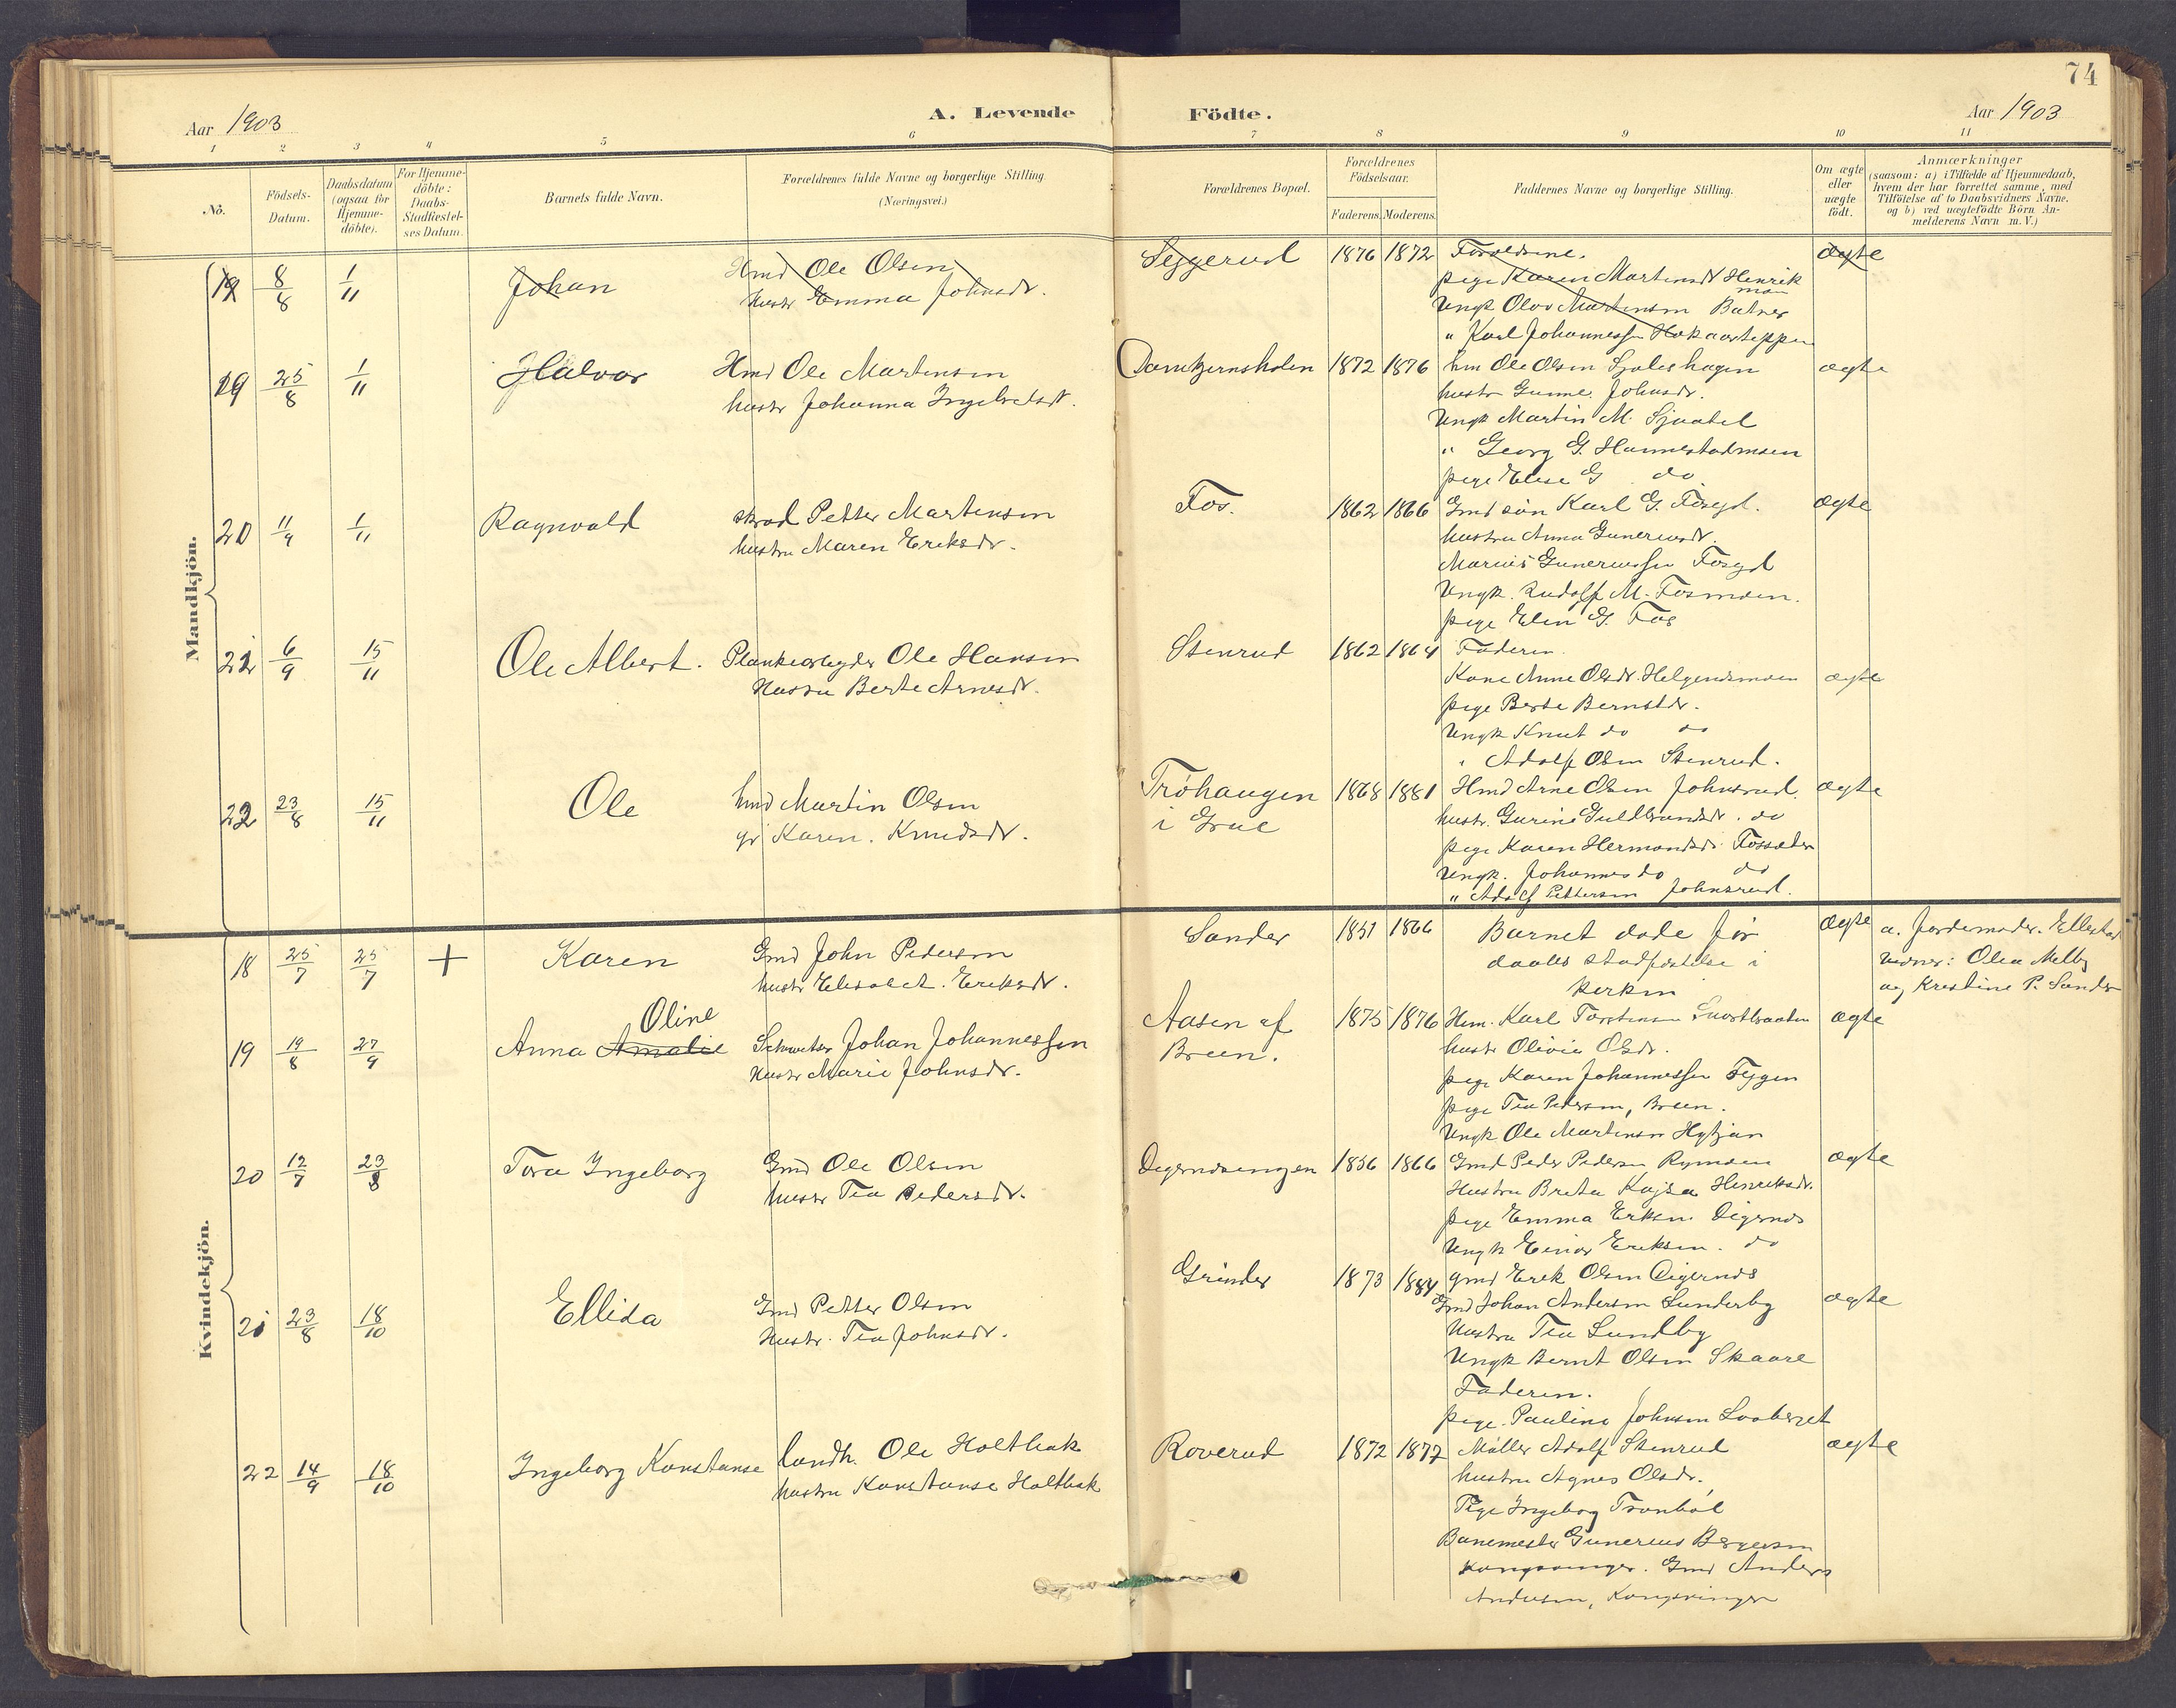 74
Aar 1903
A. Levende Födte.
Aar 1903
1 2 3 4 5 6 7 8 9 10 11
No.
Födsels-Datum.
Daabsdatum (ogsaa for Hjemme-döbte).
For Hjemme-döbte: Daabs-Stadfæstel-ses Datum.
Barnets fulde Navn.
Forældrenes fulde Navne og borgerlige Stilling. (Næringsvei.)
Forældrenes Bopæl.
Forældrenes Födselsaar.
Faderens. Moderens.
Faddernes Navne og borgerlige Stilling.
Om ægte eller uægte födt.
Anmærkninger
(saasom: a) i Tilfælde af Hjemmedaab,
hvem der har forrettet samme, med
Tilföielse af to Daabsvidners Navne.
og b) ved uægtefödte Börn An-
melderens Navn m. V.)
Mandkjön.
19 8/8 1/11 Johan
Hmd Ole Olsen
hustr Emma Johnsdr.
Seggerud 1876 1872
Forældrene.
pige Karen Martinsdr Henrik
moen
Ungk Olov Martinsen Batnes
" Karl Johannessen
ægte
19 25/8 1/11 Halvor
Hmd Ole Martinsen
hustr Johanna Ingebretsdr.
Damtjernsholen 1872 1876
hm Ole Olsen Sjoleshagen
hustr Gunne. Johnsdr.
Ungk Martin M. Sjaatil
" Georg G. Hannestadmoen
pige Elise G do
ægte
20 11/9 1/11 Ragnvald
skræd Petter Martinsen
hustru Maren Eriksdr.
Fos. 1862 1866
Gmd søn Karl G. Fosgd.
hustru Anna Guneriusdr.
Marius Gunerussen Fosgd
Ungk. Rudolf M. Fosmoen.
pige Elen G. Fos
ægte
21 6/9 15/11 Ole Albert.
Plankearbeyder Ole Hansen
Hustru Berte Arnesdr.
Stenrud 1862 1864
Faderen.
Kone Anne Olsdr. Helgendsmoen
pige Berte Berntsdr.
Ungk Knut do do
" Adolf Olsen Stenrud.
ægte
22 23/8 15/11 Ole
hmd Martin Olsen
gr Karen. Knudsdr.
Tröhaugen
i Grue
1868 1881
Hmd Arne Olsen Johnsrud.
hustr. Gurine Guldbrandsdr. do
pige Karen Hermandsdr. Fossæter
Ungk. Johannes do do
" Adolf Pettersen Johnsrud.
ægte
Kvindekjön.
18 25/7 25/7 + Karen
Gmd John Pedersen
hustr Elisabet. Eriksdr.
Sander 1851 1866
Barnet døde før
daabs stadfæstelse i
kirken
Ægte
a. Jordemoder. Ellestad
Vidner: Olea Melby
og Kristine P. Sander
19 19/8 27/9 Anna Amalie Oline
Schweitser Johan Johannessen
Hustr Marie Johnsdr.
Aasen af
Breen.
1875 1876
Hm. Karl Torstensen Snortbraaten
hustr Olivia Olsdr.
pige Karen Johannessen Tyggen
pige Tea Pedersen, Breen.
Ungk Ole Martinsen Hytjan
ægte
20 12/7 23/8 Tora Ingeborg
Gmd Ole Olsen
hustr Tea Pedersdr.
Digernæsengen 1856 1866
Gmd Peder Pedersen Rymoen
Hustru Brita Kajsa Henriksdr.
pige Emma Eriksen Digernæs
Ungk Einar Eriksen. do
gmd Erik Olsen Digernæs
ægte
21 23/8 18/10 Ellida
Gmd Petter Olsen
Hustr. Tea Johnsdr.
Grinder 1873 1884
Gmd Johan Andersen Sunderby
Hustru Tea Sundby
Ungk Bernt Olsen Skaare
Faderen.
pige. Pauline Johnsen Looberget
ægte
22 14/9 18/10 Ingeborg Konstanse
landh. Ole Holtbak
hustru Konstanse Holtbak
Roverud 1872 1877
Møller Adolf Stenrud
hustru Agnes Olsdr.
Pige Ingeborg Tronbøl
Banemester Gunerius Bergersen
Kongsvinger. Gmd Anders
Andersen, Kongsvinger
ægte